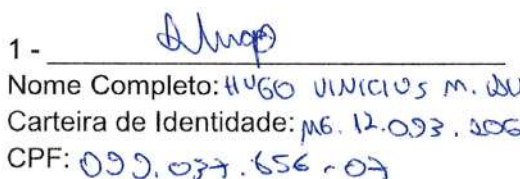 1 -
Nome Completo: HUGO VINICIUS M.
Carteira de Identidade: MG. 12.093.206
CPF: 099.037.656-07